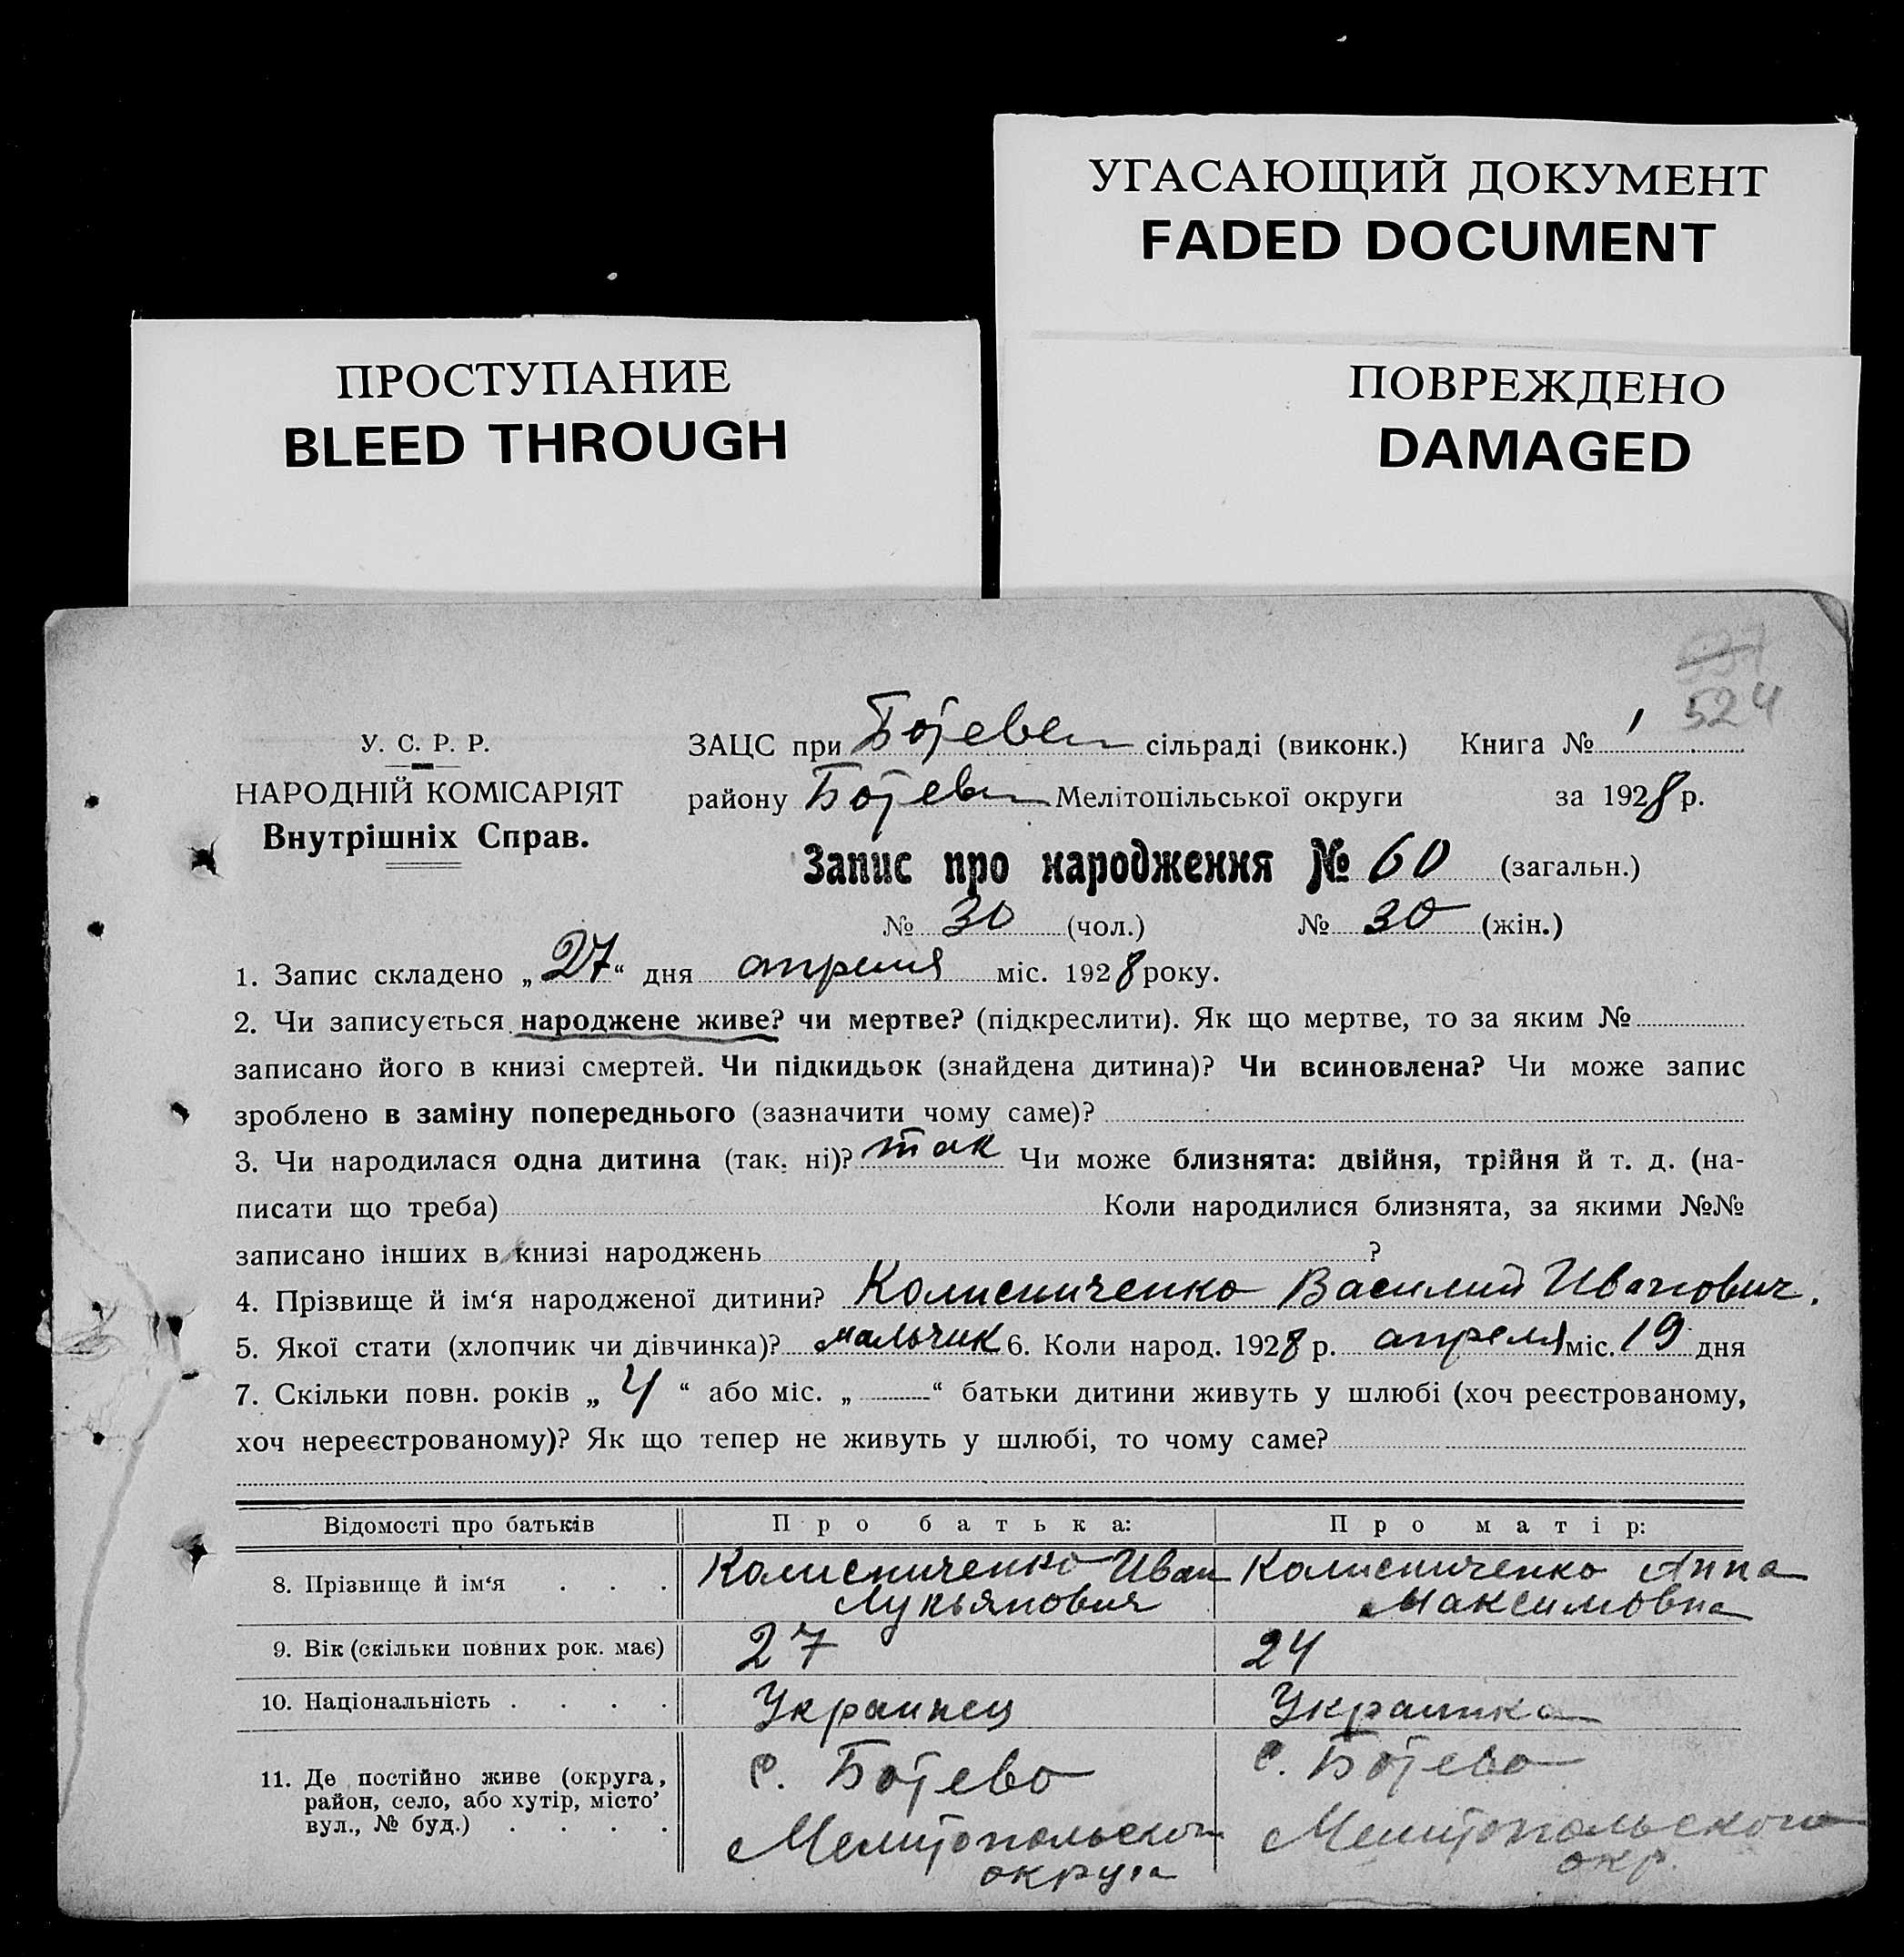 УГАСАЮЩИЙ ДОКУМЕНТ
FADED DOCUMENT
ПРОСТУПАНИЕ
BLEED THROUGH
ПОВРЕЖДЕНО
DAMAGED
524
У. С. Р. Р.
НАРОДНІЙ КОМІСАРІЯТ
Внутрішніх Справ.
ЗАЦС при Ботеве сільраді (виконк.) Книга № 1
району Ботев Мелітопільської округи за 1928 р.
Запис про народження № 60 (загальн.)
№ 30 (чол.) № 30 (жін.)
1. Запис складено „27“ дня апреля міс. 1928 року.
2. Чи записується народжене живе? чи мертве? (підкреслити). Як що мертве, то за яким №
записано його в книзі смертей. Чи підкидьок (знайдена дитина)? Чи всиновлена? Чи може запис
зроблено в заміну попереднього (зазначити чому саме)?
3. Чи народилася одна дитина (так, ні)? так Чи може близнята: двійня, трійня й т. д. (на-
писати що треба) Коли народилися близнята, за якими №№
записано інших в книзі народжень ?
4. Прізвище й ім‘я народженої дитини? Колисниченко Василий Иванович.
5. Якої стати (хлопчик чи дівчинка)? мальчик 6. Коли народ. 1928 р. апреля міс. 19 дня
7. Скільки повн. років „ 4 “ або міс. „ “ батьки дитини живуть у шлюбі (хоч реєстрованому,
хоч нереєстрованому)? Як що тепер не живуть у шлюбі, то чому саме?
Відомості про батьків Про батька: Про матір:
8. Прізвище й ім‘я . . . Колисниченко Иван Лукьянович Колисниченко Анна Максимовна
9. Вік (скільки повних рок. має) 27 24
10. Національність . . . . Украинец Украинка
11. Де постійно живе (округа, район, село, або хутір, місто, вул., № буд.) . . . . с. Ботево Мелитопольского округа с. Ботево Мелитопольского окр.